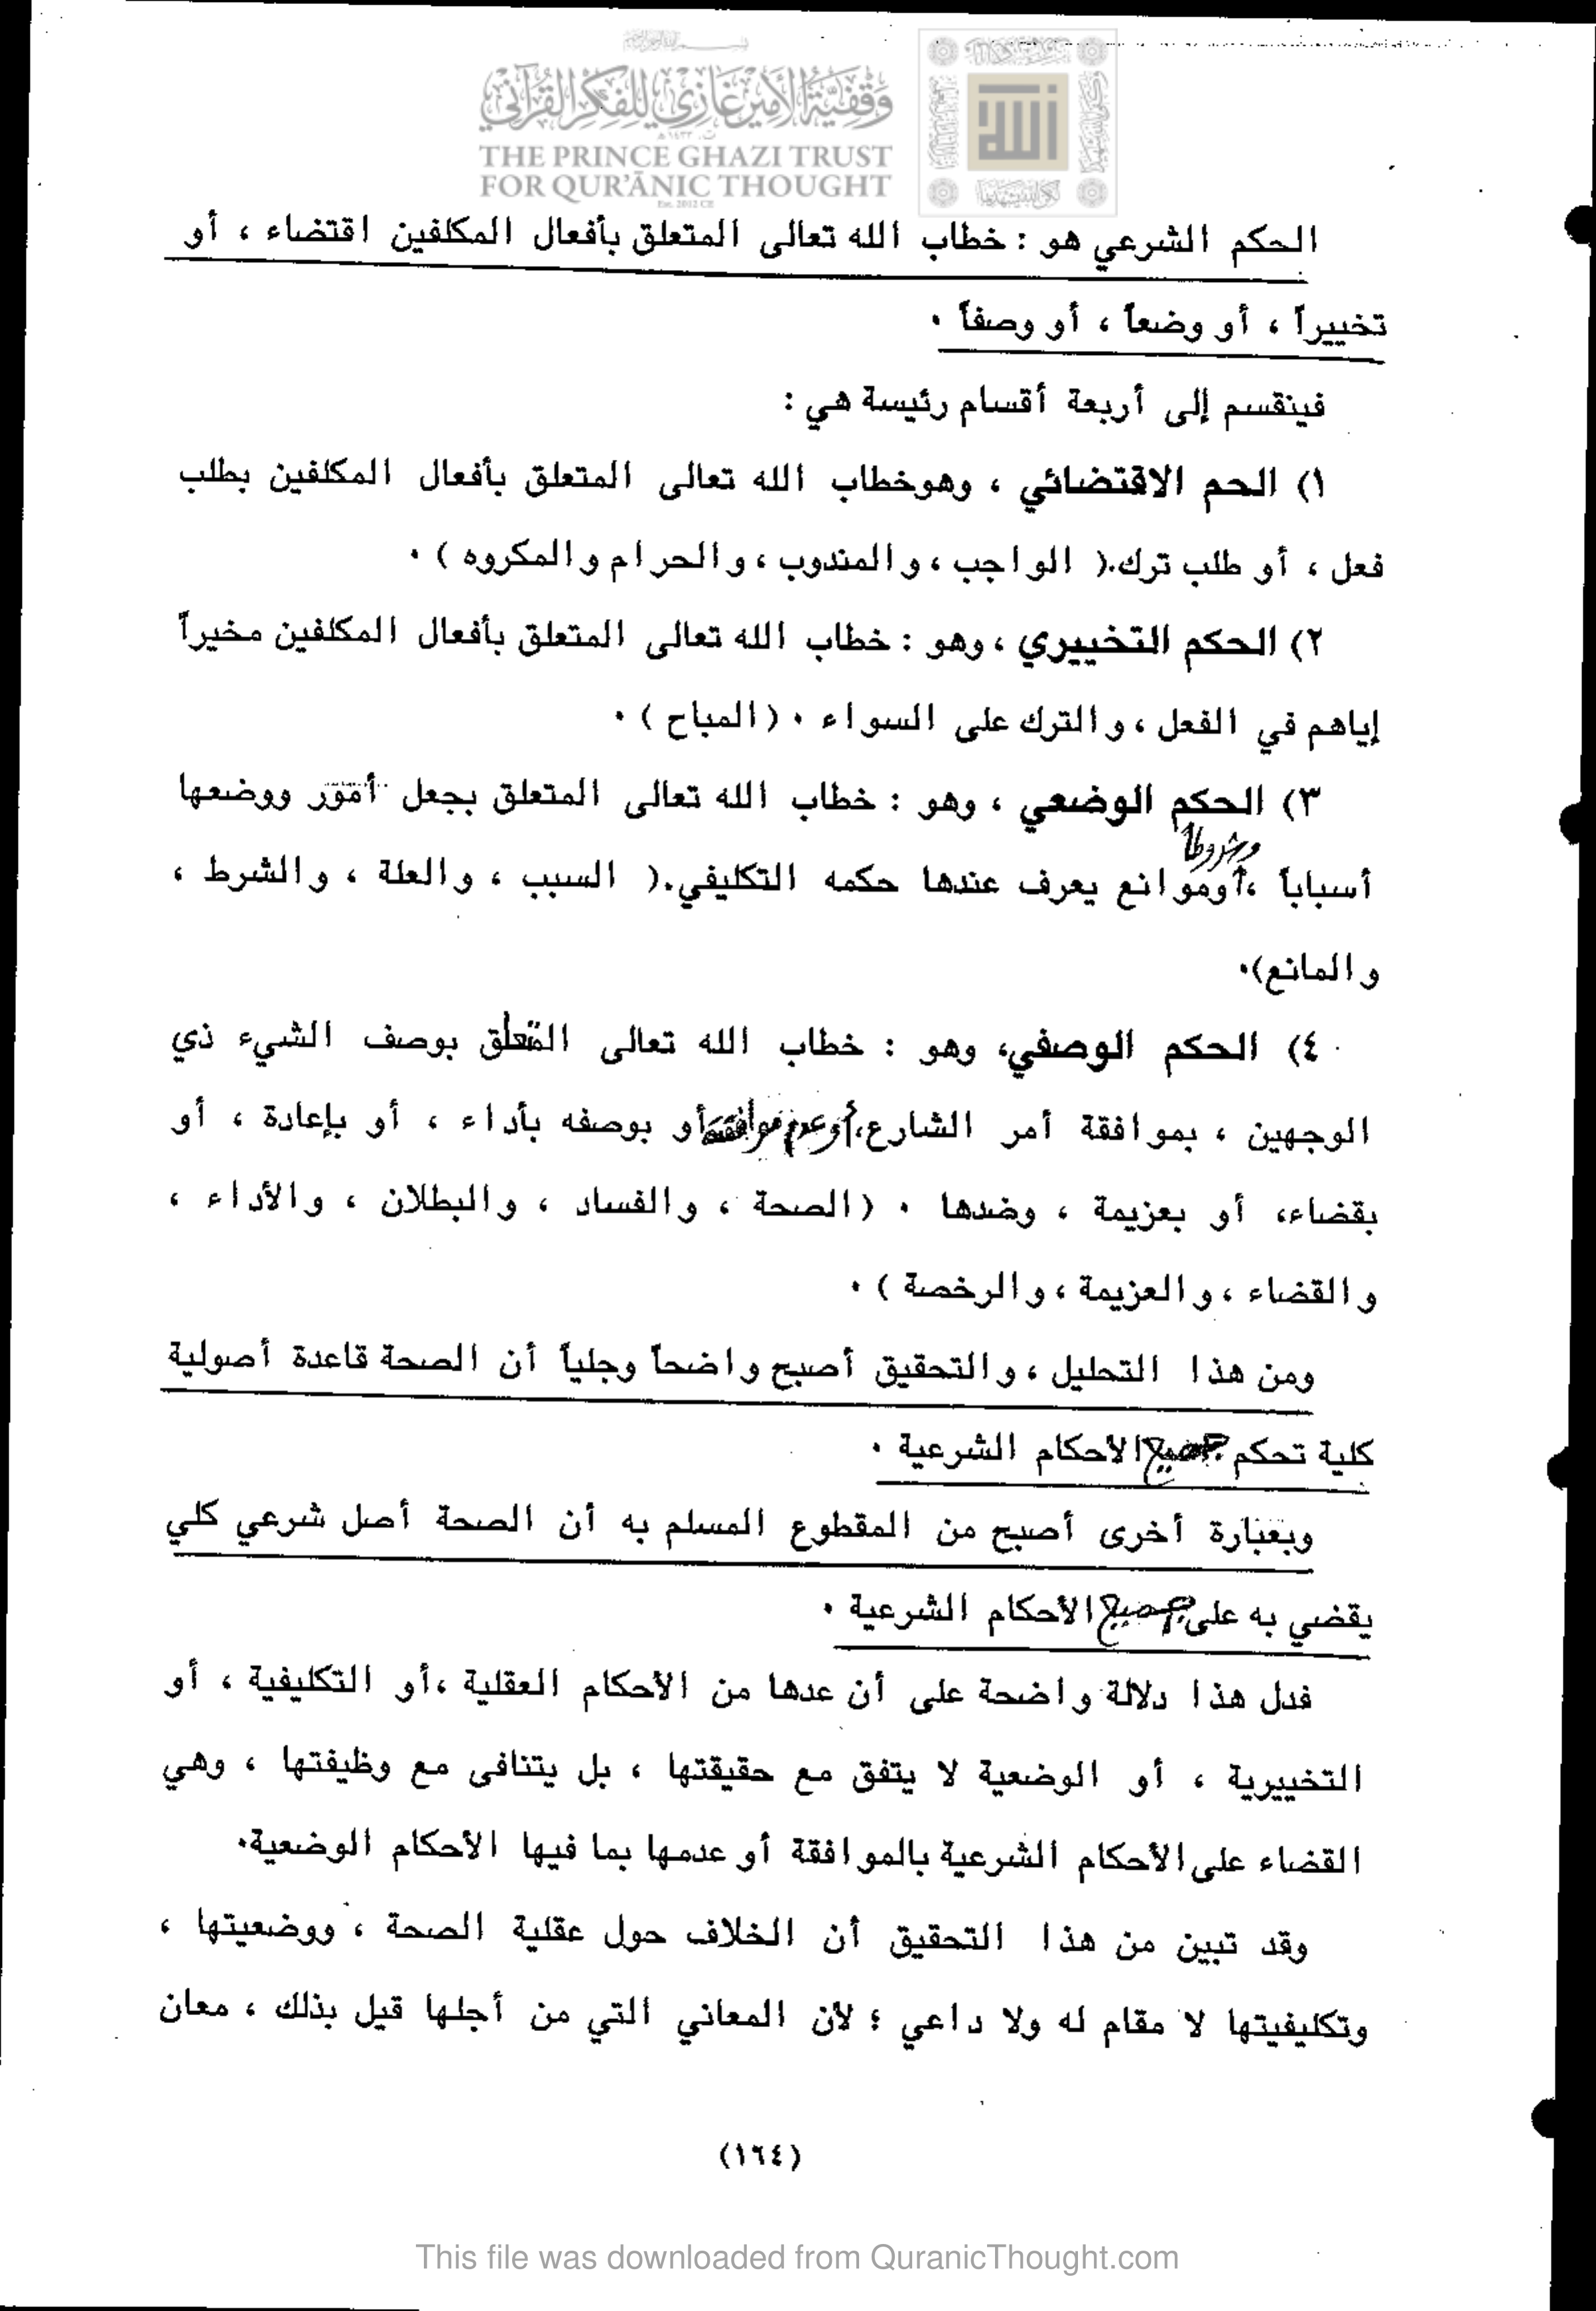 وقفية الأمير غازي للفكر القرآني
THE PRINCE GHAZI TRUST
FOR QUR'ĀNIC THOUGHT
Est. 2012 CE
الحكم الشرعي هو : خطاب الله تعالى المتعلق بأفعال المكلفين اقتضاء ، أو
تخييراً ، أو وضعاً ، أو وصفاً .
فينقسم إلى أربعة أقسام رئيسة هي :
١) الحم الاقتضائي ، وهوخطاب الله تعالى المتعلق بأفعال المكلفين بطلب
فعل ، أو طلب ترك.( الواجب ، والمندوب ، والحرام والمكروه ) .
٢) الحكم التخييري ، وهو : خطاب الله تعالى المتعلق بأفعال المكلفين مخيراً
إياهم في الفعل ، والترك على السواء . (المباح ) .
٣) الحكم الوضعي ، وهو : خطاب الله تعالى المتعلق بجعل أمور ووضعها
وشروطاً
أسباباً ،أوموانع يعرف عندها حكمه التكليفي.( السبب ، والعلة ، والشرط ،
والمانع).
٤) الحكم الوصفي، وهو : خطاب الله تعالى المتعلق بوصف الشيء ذي
الوجهين ، بموافقة أمر الشارع، أو عدم موافقته أو بوصفه بأداء ، أو بإعادة ، أو
بقضاء، أو بعزيمة ، وضدها . (الصحة ، والفساد ، والبطلان ، والأداء ،
والقضاء ، والعزيمة ، والرخصة ) .
ومن هذا التحليل ، والتحقيق أصبح واضحاً وجلياً أن الصحة قاعدة أصولية
كلية تحكم جميع الأحكام الشرعية .
وبعبارة أخرى أصبح من المقطوع المسلم به أن الصحة أصل شرعي كلي
يقضي به على جميع الأحكام الشرعية .
فدل هذا دلالة واضحة على أن عدها من الأحكام العقلية ،أو التكليفية ، أو
التخييرية ، أو الوضعية لا يتفق مع حقيقتها ، بل يتنافى مع وظيفتها ، وهي
القضاء على الأحكام الشرعية بالموافقة أو عدمها بما فيها الأحكام الوضعية.
وقد تبين من هذا التحقيق أن الخلاف حول عقلية الصحة ، ووضعيتها ،
وتكليفيتها لا مقام له ولا داعي ؛ لأن المعاني التي من أجلها قيل بذلك ، معان
(١٦٤)
This file was downloaded from QuranicThought.com